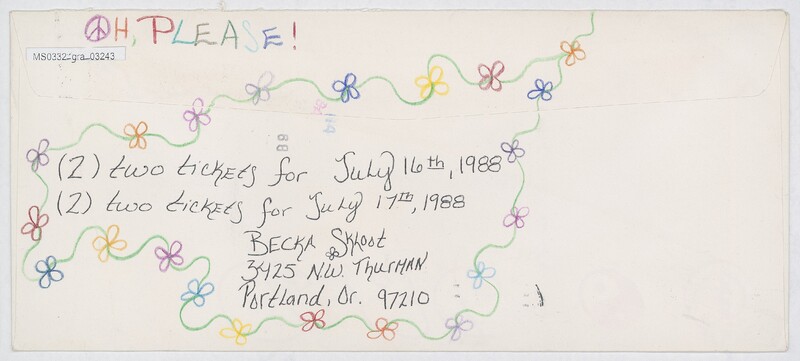 OH, PLEASE!
MS0332_gra_03243
88
(2) two tickets for July 16th, 1988
(2) two tickets for July 17th, 1988
Becka
3425 NW. Thurman
Portland, Or. 97210